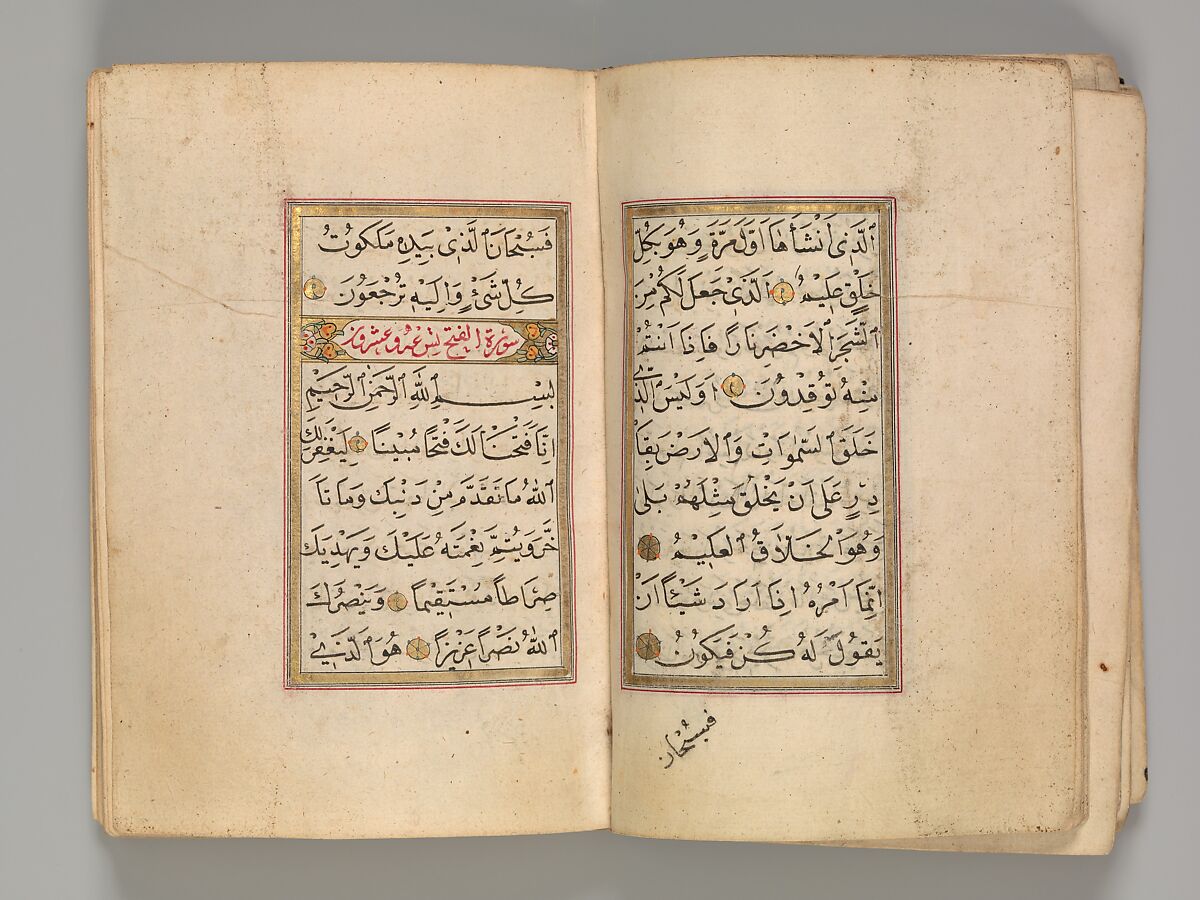 ٱلَّذِى أَنْشَأَهَا اَوَّلَ مَرَّةٍ وَهُوَ بِكُلِّ
خَلْقٍ عَلِيْمٌ اَلَّذِى جَعَلَ لَكُمْ مِنَ
ٱلشَّجَرِ الْاَخْضَرِ نَارًا فَاِذَا اَنْتُمْ
مِنْهُ تُوقِدُونَ اَوَلَيْسَ الَّذِى
خَلَقَ السَّمٰوَاتِ وَالْاَرْضَ بِقَا
دِرٍ عَلٰى اَنْ يَخْلُقَ مِثْلَهُمْ بَلٰى
وَهُوَ الْخَلَّاقُ الْعَلِيْمُ
اِنَّمَا اَمْرُهُ اِذَا اَرَادَ شَيْئًا اَنْ
يَقُولَ لَهُ كُنْ فَيَكُونُ
فسبحان
فَسُبْحَانَ ٱلَّذِى بِيَدِهِ مَلَكُوتُ
كُلِّ شَىْءٍ وَاِلَيْهِ تُرْجَعُونَ
سورة الفتح تسع وعشرون
بِسْمِ اللّٰهِ الرَّحْمٰنِ الرَّحِيْمِ
اِنَّا فَتَحْنَا لَكَ فَتْحًا مُبِيْنًا لِيَغْفِرَ لَكَ
ٱللّٰهُ مَا تَقَدَّمَ مِنْ ذَنْبِكَ وَمَا تَاَ
خَّرَ وَيُتِمَّ نِعْمَتَهُ عَلَيْكَ وَيَهْدِيَكَ
صِرَاطًا مُسْتَقِيْمًا وَيَنْصُرَكَ
ٱللّٰهُ نَصْرًا عَزِيْزًا هُوَ ٱلَّذِى